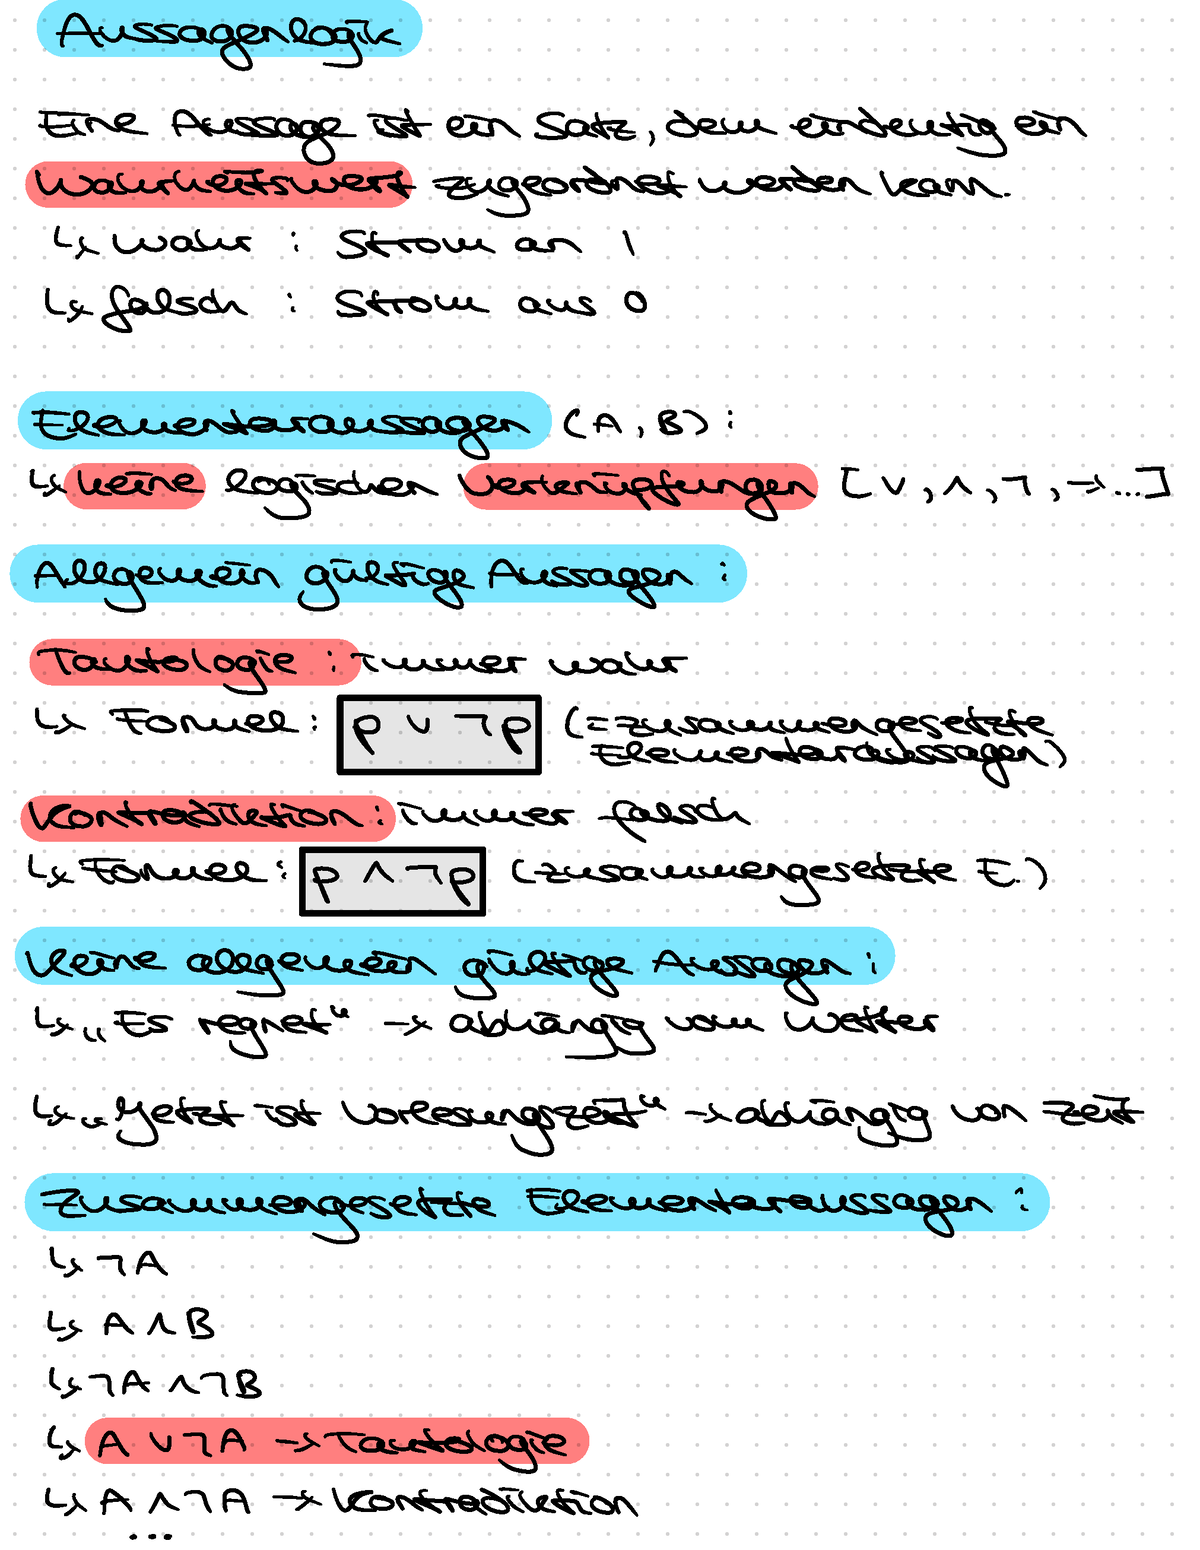 Aussagenlogik
Eine Aussage ist ein Satz, dem eindeutig ein
Wahrheitswert zugeordnet werden kann.
↳ wahr : Strom an 1
↳ falsch : Strom aus 0
Elementaraussagen (A, B) :
↳ keine logischen Verknüpfungen [∨, ∧, ¬, →...]
Allgemein gültige Aussagen :
Tautologie : immer wahr
↳ Formel : p ∨ ¬p (=zusammengesetzte
Elementaraussagen)
Kontradiktion : immer falsch
↳ Formel : p ∧ ¬p (zusammengesetzte E.)
Keine allgemein gültige Aussagen :
↳ „Es regnet“ → abhängig vom Wetter
↳ „Jetzt ist Vorlesungszeit“ → abhängig von Zeit
Zusammengesetzte Elementaraussagen :
↳ ¬A
↳ A ∧ B
↳ ¬A ∧ ¬B
↳ A ∨ ¬A → Tautologie
↳ A ∧ ¬A → Kontradiktion
...